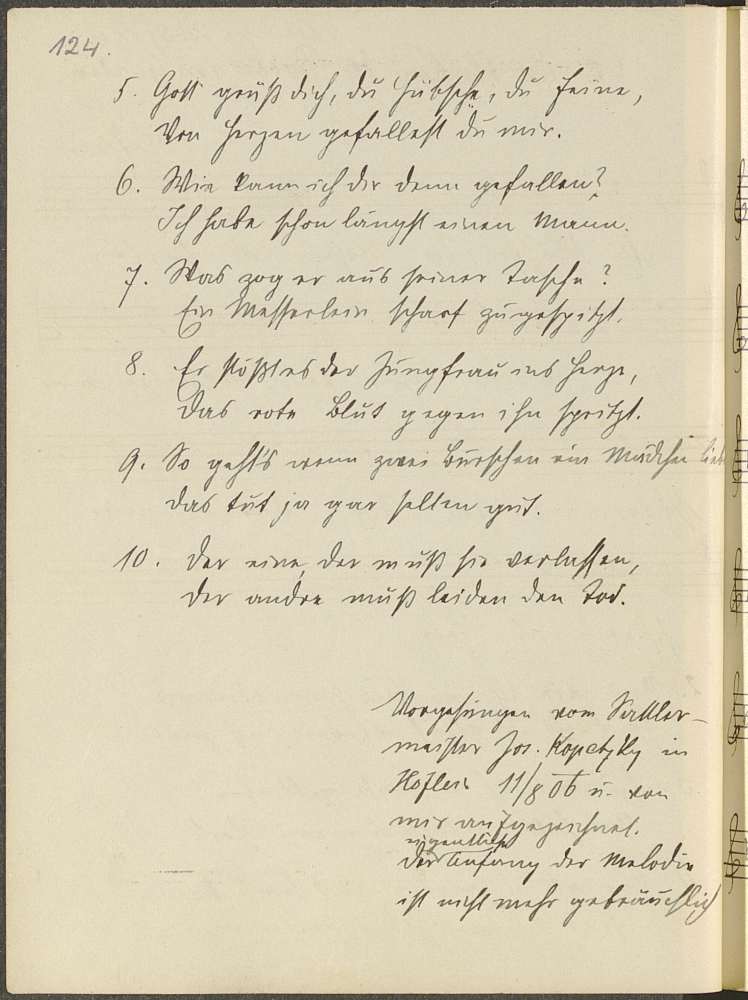 124.
5. Gott grüß dich, du hübsche, du feine,
Von Herzen gefallest du mir.
6. Wie kann ich dir denn gefallen?
Ich habe schon längst einen Mann.
7. Was zog er aus seiner Tasche?
Ein Messerlein scharf zugespitzt.
8. Er stößt es der Jungfrau ins Herze,
Das rote Blut gegen ihn spritzt.
9. So geht's wenn zwei Burschen ein Mädchen lieb
das tut ja gar selten gut.
10. Der eine, der muß sie verlassen,
der andre muß leiden den Tod.
Vorgesungen vom Sattler-
meister Jos. Kopetzky in
Höflein 11/8 06 u. von
mir aufgezeichnet.
eigentliche
Der Anfang der Melodie
ist nicht mehr gebräuchlich